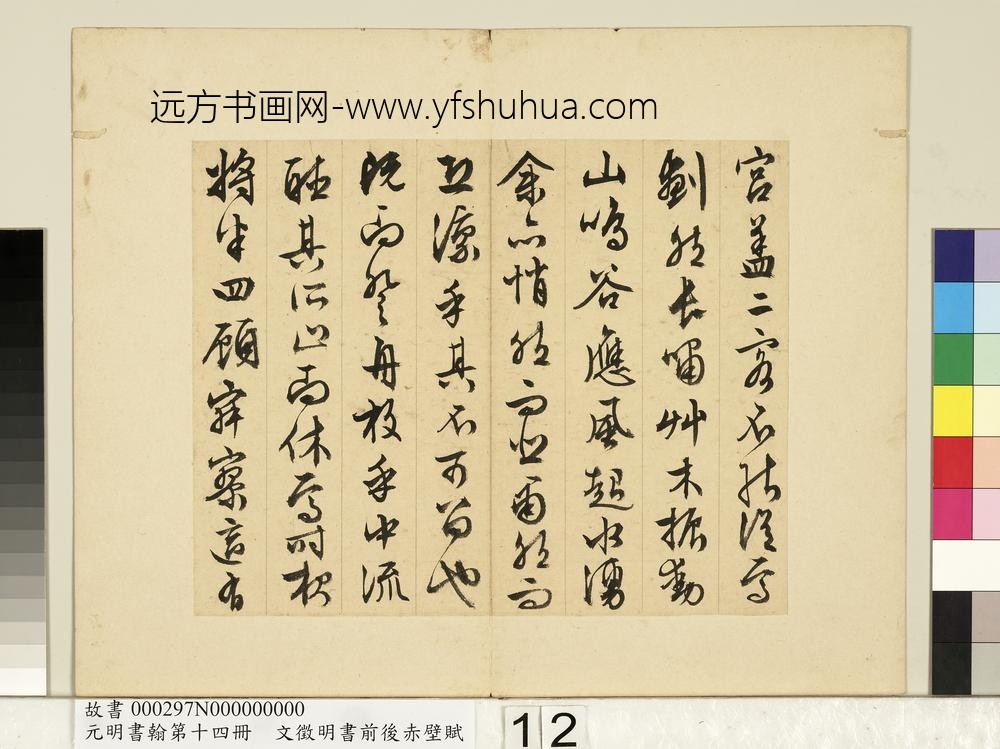 远方书画网-www.yfshuhua.com
宮盖二客不能從焉
劃然長嘯艸木振動
山鳴谷應風起水湧
余亦悄然而悲肅然而
恐凛乎其不可留也
既而登舟放乎中流
聽其所止而休焉時夜
將半四顧寂寥適有
故書 000297N000000000
元明書翰第十四冊 文徵明書前後赤壁賦
12